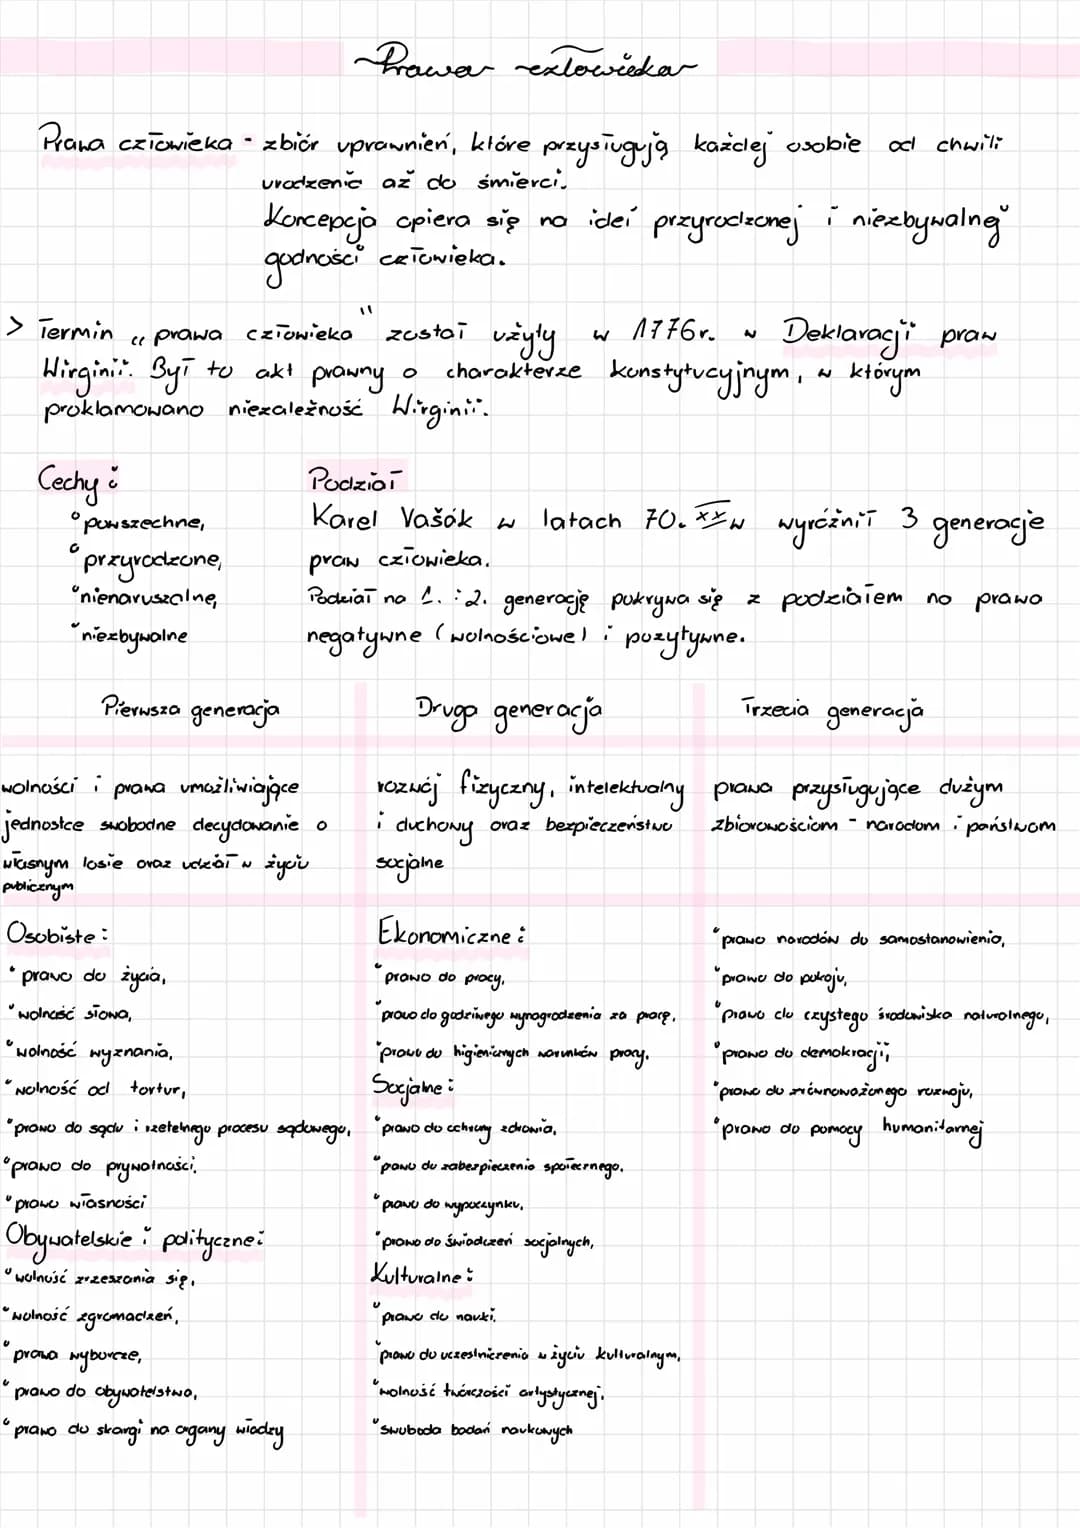 Prawa człowieka
Prawa człowieka - zbiór uprawnień, które przysługują każdej osobie od chwili
urodzenia aż do śmierci.
Koncepcja opiera się na idei przyrodzonej i niezbywalnej
godności człowieka.
> Termin „prawa człowieka" został użyty w 1776r. w Deklaracji praw
Wirginii. Był to akt prawny o charakterze konstytucyjnym, w którym
proklamowano niezależność Wirginii.
Cechy:
°powszechne,
°przyrodzone,
°nienaruszalne,
°niezbywalne
Podział
Karel Vašák w latach 70. XXw wyróżnił 3 generacje
praw człowieka.
Podział na 1. i 2. generację pokrywa się z podziałem na prawa
negatywne (wolnościowe) i pozytywne.
Pierwsza generacja
wolności i prawa umożliwiające
jednostce swobodne decydowanie o
własnym losie oraz udział w życiu
publicznym
Osobiste:
°prawo do życia,
°wolność słowa,
°wolność wyznania,
°wolność od tortur,
°prawo do sądu i rzetelnego procesu sądowego,
°prawo do prywatności,
°prawo własności
Obywatelskie i polityczne:
°wolność zrzeszania się,
°wolność zgromadzeń,
°prawa wyborcze,
°prawo do obywatelstwa,
°prawo do skargi na organy władzy
Druga generacja
rozwój fizyczny, intelektualny
i duchowy oraz bezpieczeństwo
socjalne
Ekonomiczne:
°prawo do pracy,
°prawo do godziwego wynagrodzenia za pracę,
°prawo do higienicznych warunków pracy.
Socjalne:
°prawo do ochrony zdrowia,
°pawo do zabezpieczenia społecznego,
°prawo do wypoczynku,
°prawo do świadczeń socjalnych,
Kulturalne:
°prawo do nauki,
°prawo do uczestniczenia w życiu kulturalnym,
°wolność twórczości artystycznej,
°swoboda badań naukowych
Trzecia generacja
prawa przysługujące dużym
zbiorowościom - narodom i państwom
°prawo narodów do samostanowienia,
°prawo do pokoju,
°prawo do czystego środowiska naturalnego,
°prawo do demokracji,
°prawo do zrównoważonego rozwoju,
°prawo do pomocy humanitarnej